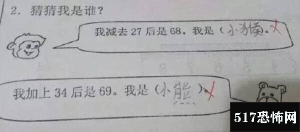 2. 猜猜我是谁?
我减去 27 后是 68。我是(小猴)。
我加上 34 后是 69。我是(小熊)。
517恐怖网